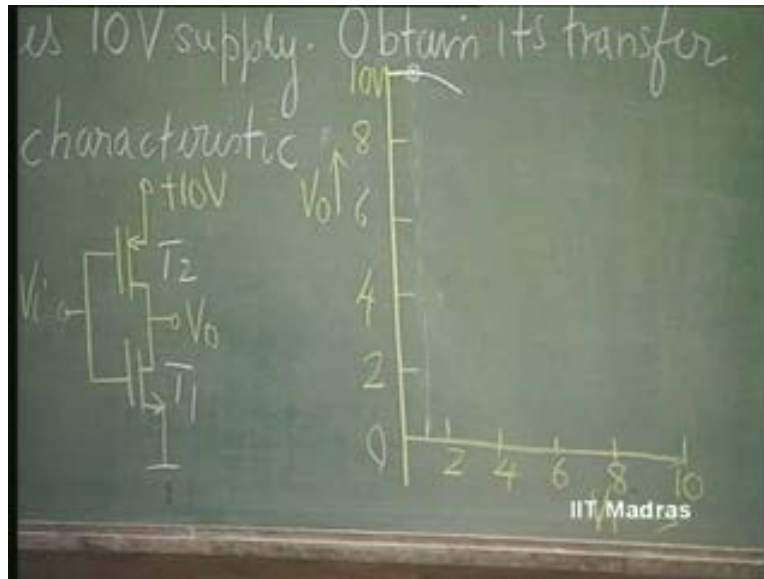 is 10V supply. Obtain its transfer
characteristic
+10V
T2
Vi
V0
T1
10V
8
V0
6
4
2
0
2 4 6 8 10
IIT Madras